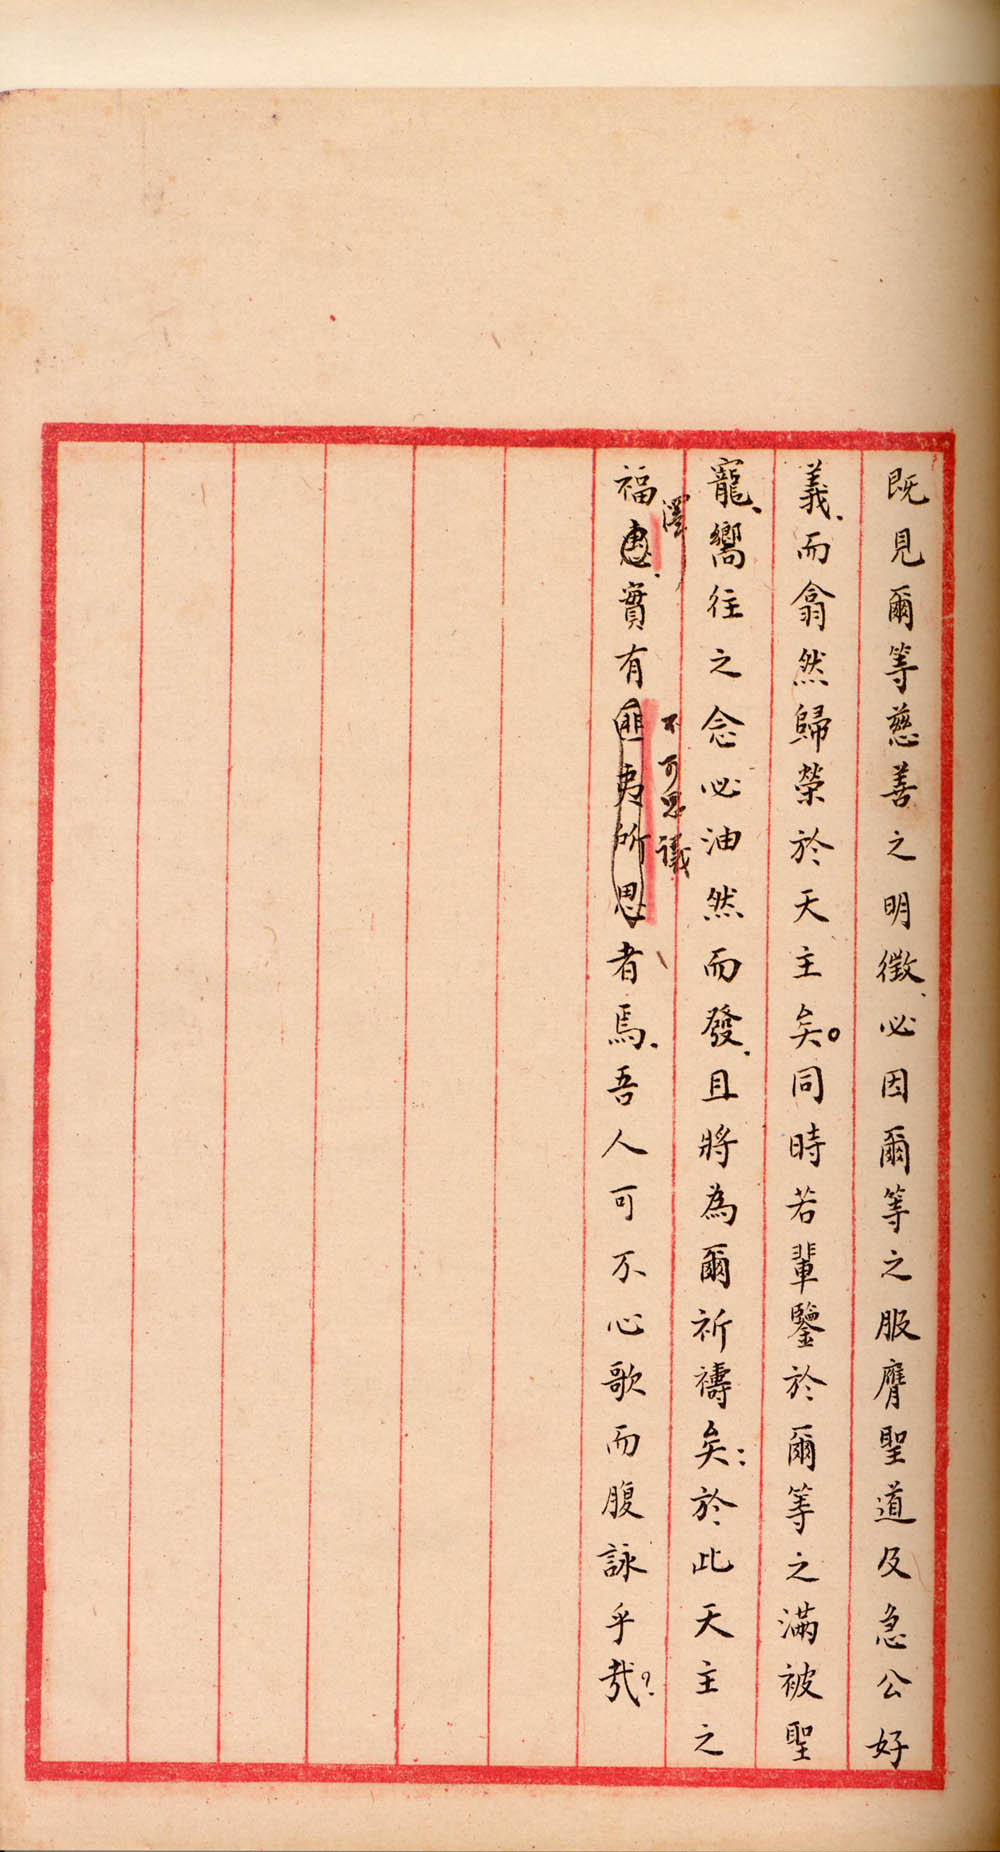 既見爾等慈善之明徵、必因爾等之服膺聖道及急公好
義、而翕然歸榮於天主矣。同時若輩鑒於爾等之滿被聖
寵、嚮往之念必油然而發、且將為爾祈禱矣：於此天主之
福惠、實有匪夷所思者焉、吾人可不心歌而腹詠乎哉？
澤
不可思議